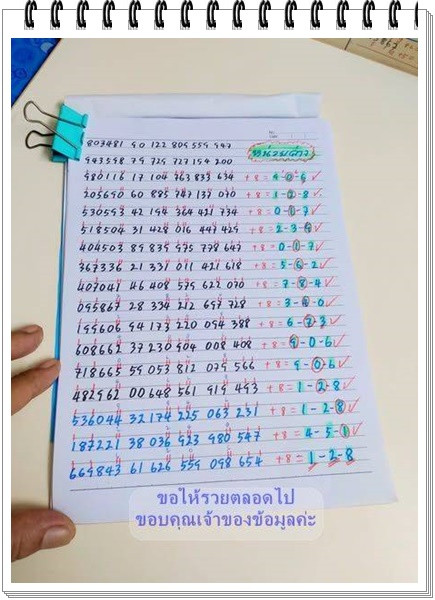 803481 90 122 809 559 947
943598 79 729 727 194 200
980116 17 104 763 833 634 +8 = 4-0-5 ✓
205690 60 885 747 137 070 +8 = 1-2-8 ✓
530593 42 194 364 421 734 +8 = 0-1-7 ✓
518504 31 428 016 447 429 +8 = 2-3-9 ✓
404503 85 835 575 778 647 +8 = 0-1-7 ✓
367336 21 331 011 421 618 +8 = 5-6-2 ✓
407041 46 408 575 622 070 +8 = 7-8-4 ✓
095867 28 334 212 697 728 +8 = 3-4-0 ✓
199606 94 173 220 094 388 +8 = 6-7-3 ✓
608662 37 230 504 008 408 +8 = 9-0-6 ✓
718665 59 053 812 079 566 +8 = 9-0-6 ✓
482962 00 648 561 919 493 +8 = 1-2-8 ✓
536044 32 174 225 063 231 +8 = 1-2-8 ✓
187221 38 036 923 980 547 +8 = 4-5-1 ✓
669843 61 626 559 098 654 +8 = 1-2-8
ขอให้รวยตลอดไป
ขอบคุณเจ้าของข้อมูลค่ะ